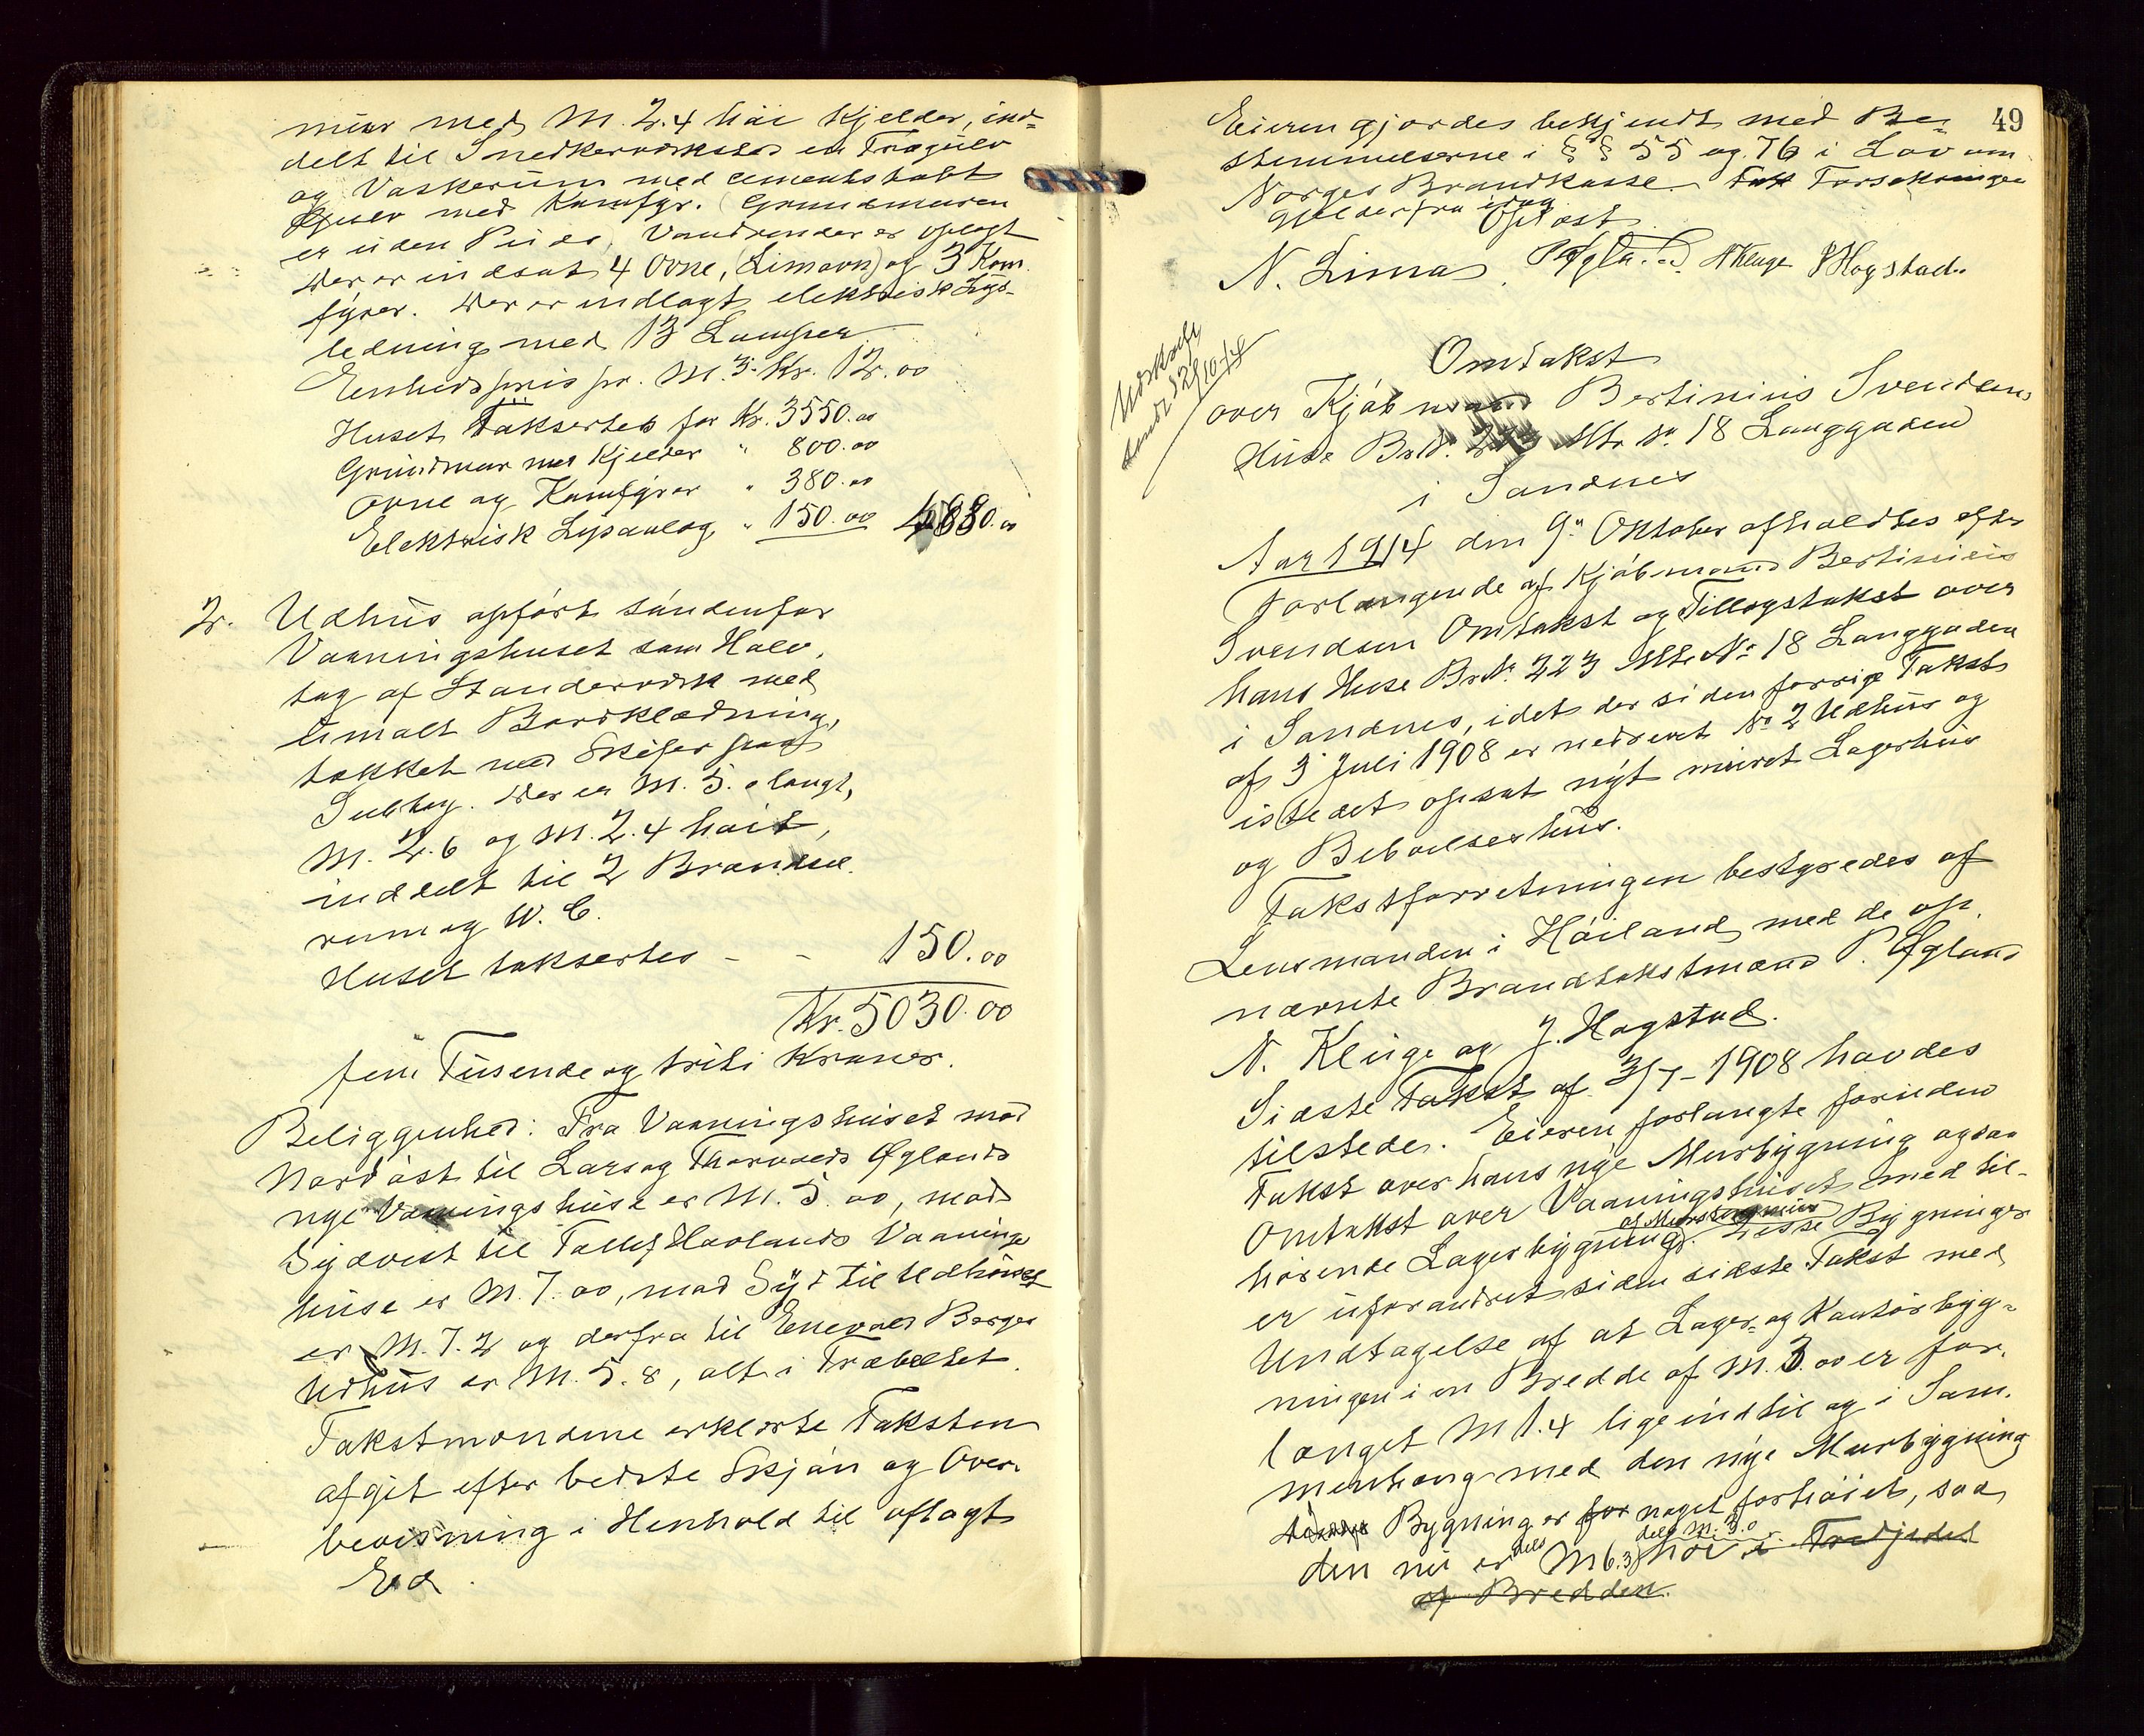 mur med M. 2.4 høi Kjelder, ind-
delt til Snedkerverksted en Trægulv
og Vaskerum med cementstøbt
Gulv med Komfyr. (Grundmuren
er uden Puds). Vandrender er oplagt
Der er indsat 4 Ovne, (Limovn) og 3 Kom-
fyrer. Der er indlagt elektrisk Lys-
ledning med 13 Lamper
Enhedspris pr. M.3. Kr. 12.00
Huset Taksertes for Kr. 3550.00
Grundmur med Kjelder " 800.00
Ovne og Komfyrer " 380.00
Elektrisk Lysanlæg " 150.00 4880.00
2. Udhus opført søndenfor
Vaaningshuset som Halv-
tag af Standerverk med
umalt Bordklædning,
tækket med Skifer paa
Sultag. Der er M. 5.0 langt,
M. 2.6 og M. 2.4 høit,
inddelt til 2 Brændsel-
rum og W. C.
Huset taksertes - - 150.00
Kr. 5030.00
fem Tusende og triti Kroner.
Beliggenhed: Fra Vaaningshuset mod
Nordøst til Lars og Thorvald Øglands
nye Vaaningshuse er M. 5.00, mod
Sydvest til Tollef Havlands Vaanings-
huse er M. 7.00, mod Syd til Udhuset
er M. 7.2 og derfra til Enevald Berges
Udhus er M. 5.8, alt i Træbeltet.
Takstmændene erklærte Taksten
afgit efter bedste Skjøn og Over-
bevisning i Henhold til aflagt
Ed.
49
Eieren gjordes bekjendt med Be-
stemmelserne i §§ 55 og 76 i Lov om
Norges Brandkasse. Tak Forsikringen
gjelder fra idag
Oplæst
N. Lima. P Øgland. N Kluge J Hogstad.
Udskrift
sendt 28/10-14
Omtakst
over Kjøbmand Bertinius Svendsens
Huse Br.N. 223 Mtr. No 18 Langgaden
i Sandnes
Aar 1914 den 9. Oktober afholdtes efter
Forlangende af Kjøbmand Bertinius
Svendsen Omtakst og Tillægstakst over
hans Huse Br.N. 223 Mtr. No 18 Langgaden
i Sandnes, idet der siden forrige Takst
af 3 Juli 1908 er nedrevet No 2 Udhus og
istedet opsat nyt muret Lagerhus
og Beboelseshus.
Takstforretningen bestyredes af
Lensmanden i Høiland med de op-
nævnte Brandtakstmænd P. Øgland
N. Kluge og J. Hogstad.
Sidste Takst af 3/7-1908 havdes
tilstede. Eieren forlangte foruden
Takst over hans nye Murbygning ogsaa
Omtakst over Vaaningshuset med til-
hørende Lagerbygning. Disse Bygninger
er uforandret siden sidste Takst med
Undtagelse af at Lager- og Kontorbyg-
ningen i en Bredde af M. 3.00 er for-
længet M 1.4 lige indtil og i Sam-
menhæng med den nye Murbygning
Bygning er for noget forhøiet, saa
den nu er dels M 6.3 dels M. 3.0 høi i Tredjedel
af Bredden.